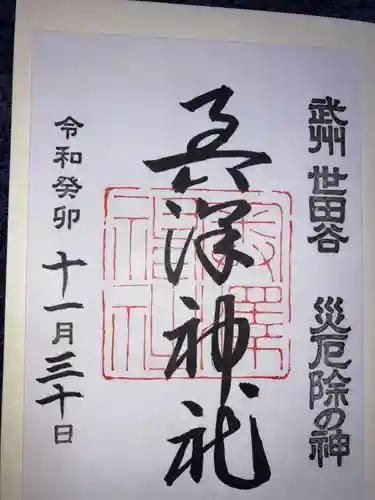 武州 世田谷 災厄除の神
奥澤神社
奥澤
神社
令和癸卯 十一月三十日